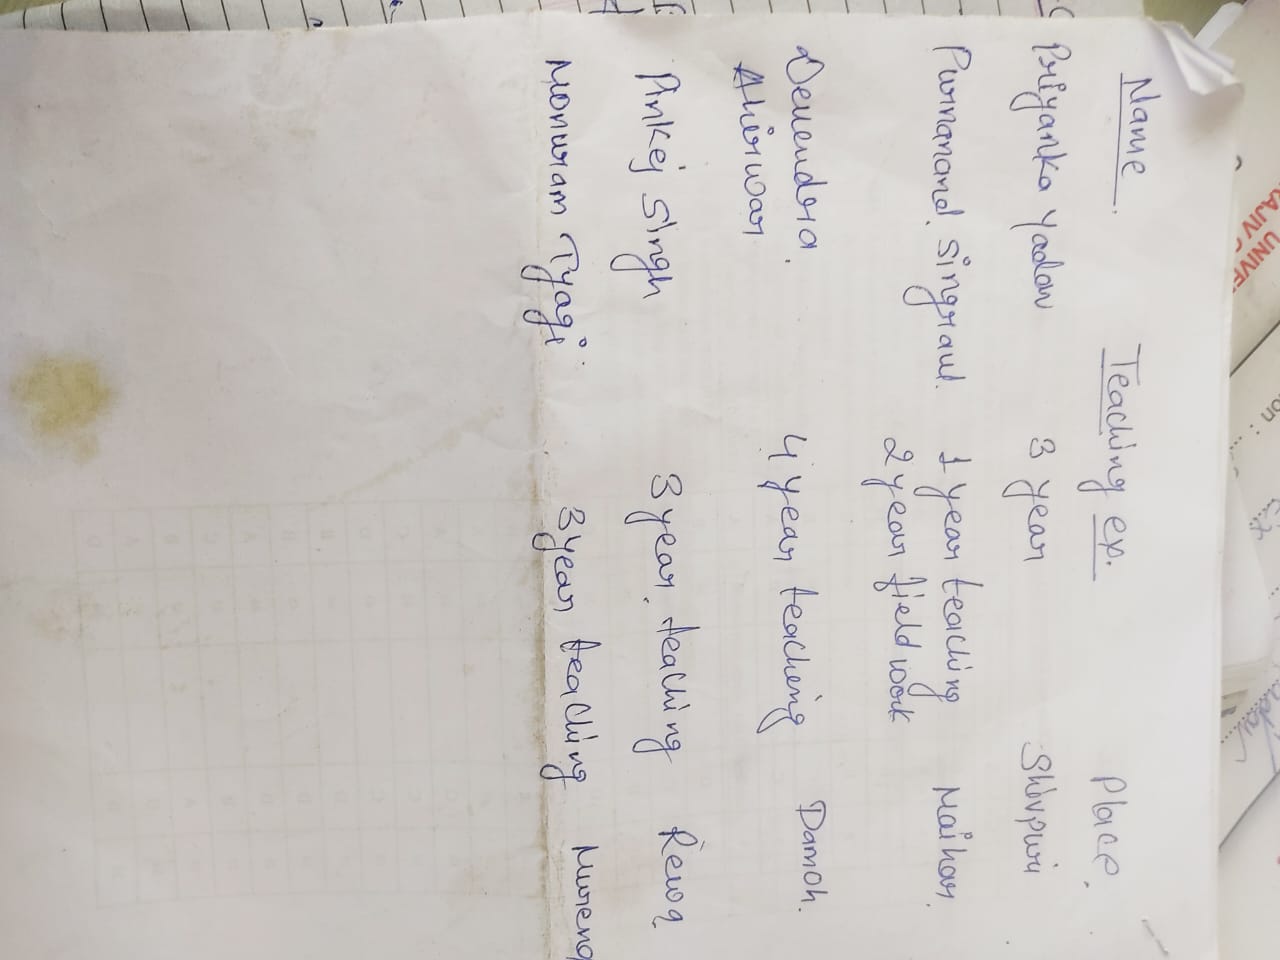 UNIVE
RAJIV
on : ....
Name
Teaching ex.
Place.
Priyanka Yadav
3 year
Shivpuri
Purnanand. Singraul.
1 year teaching
Maihar.
2 year field work
Devendra.
4 year teaching
Damoh.
Ahirwar
Pinkej Singh
3 year. teaching
Rewa
Monuram Tyagi
3 year teaching
Murena